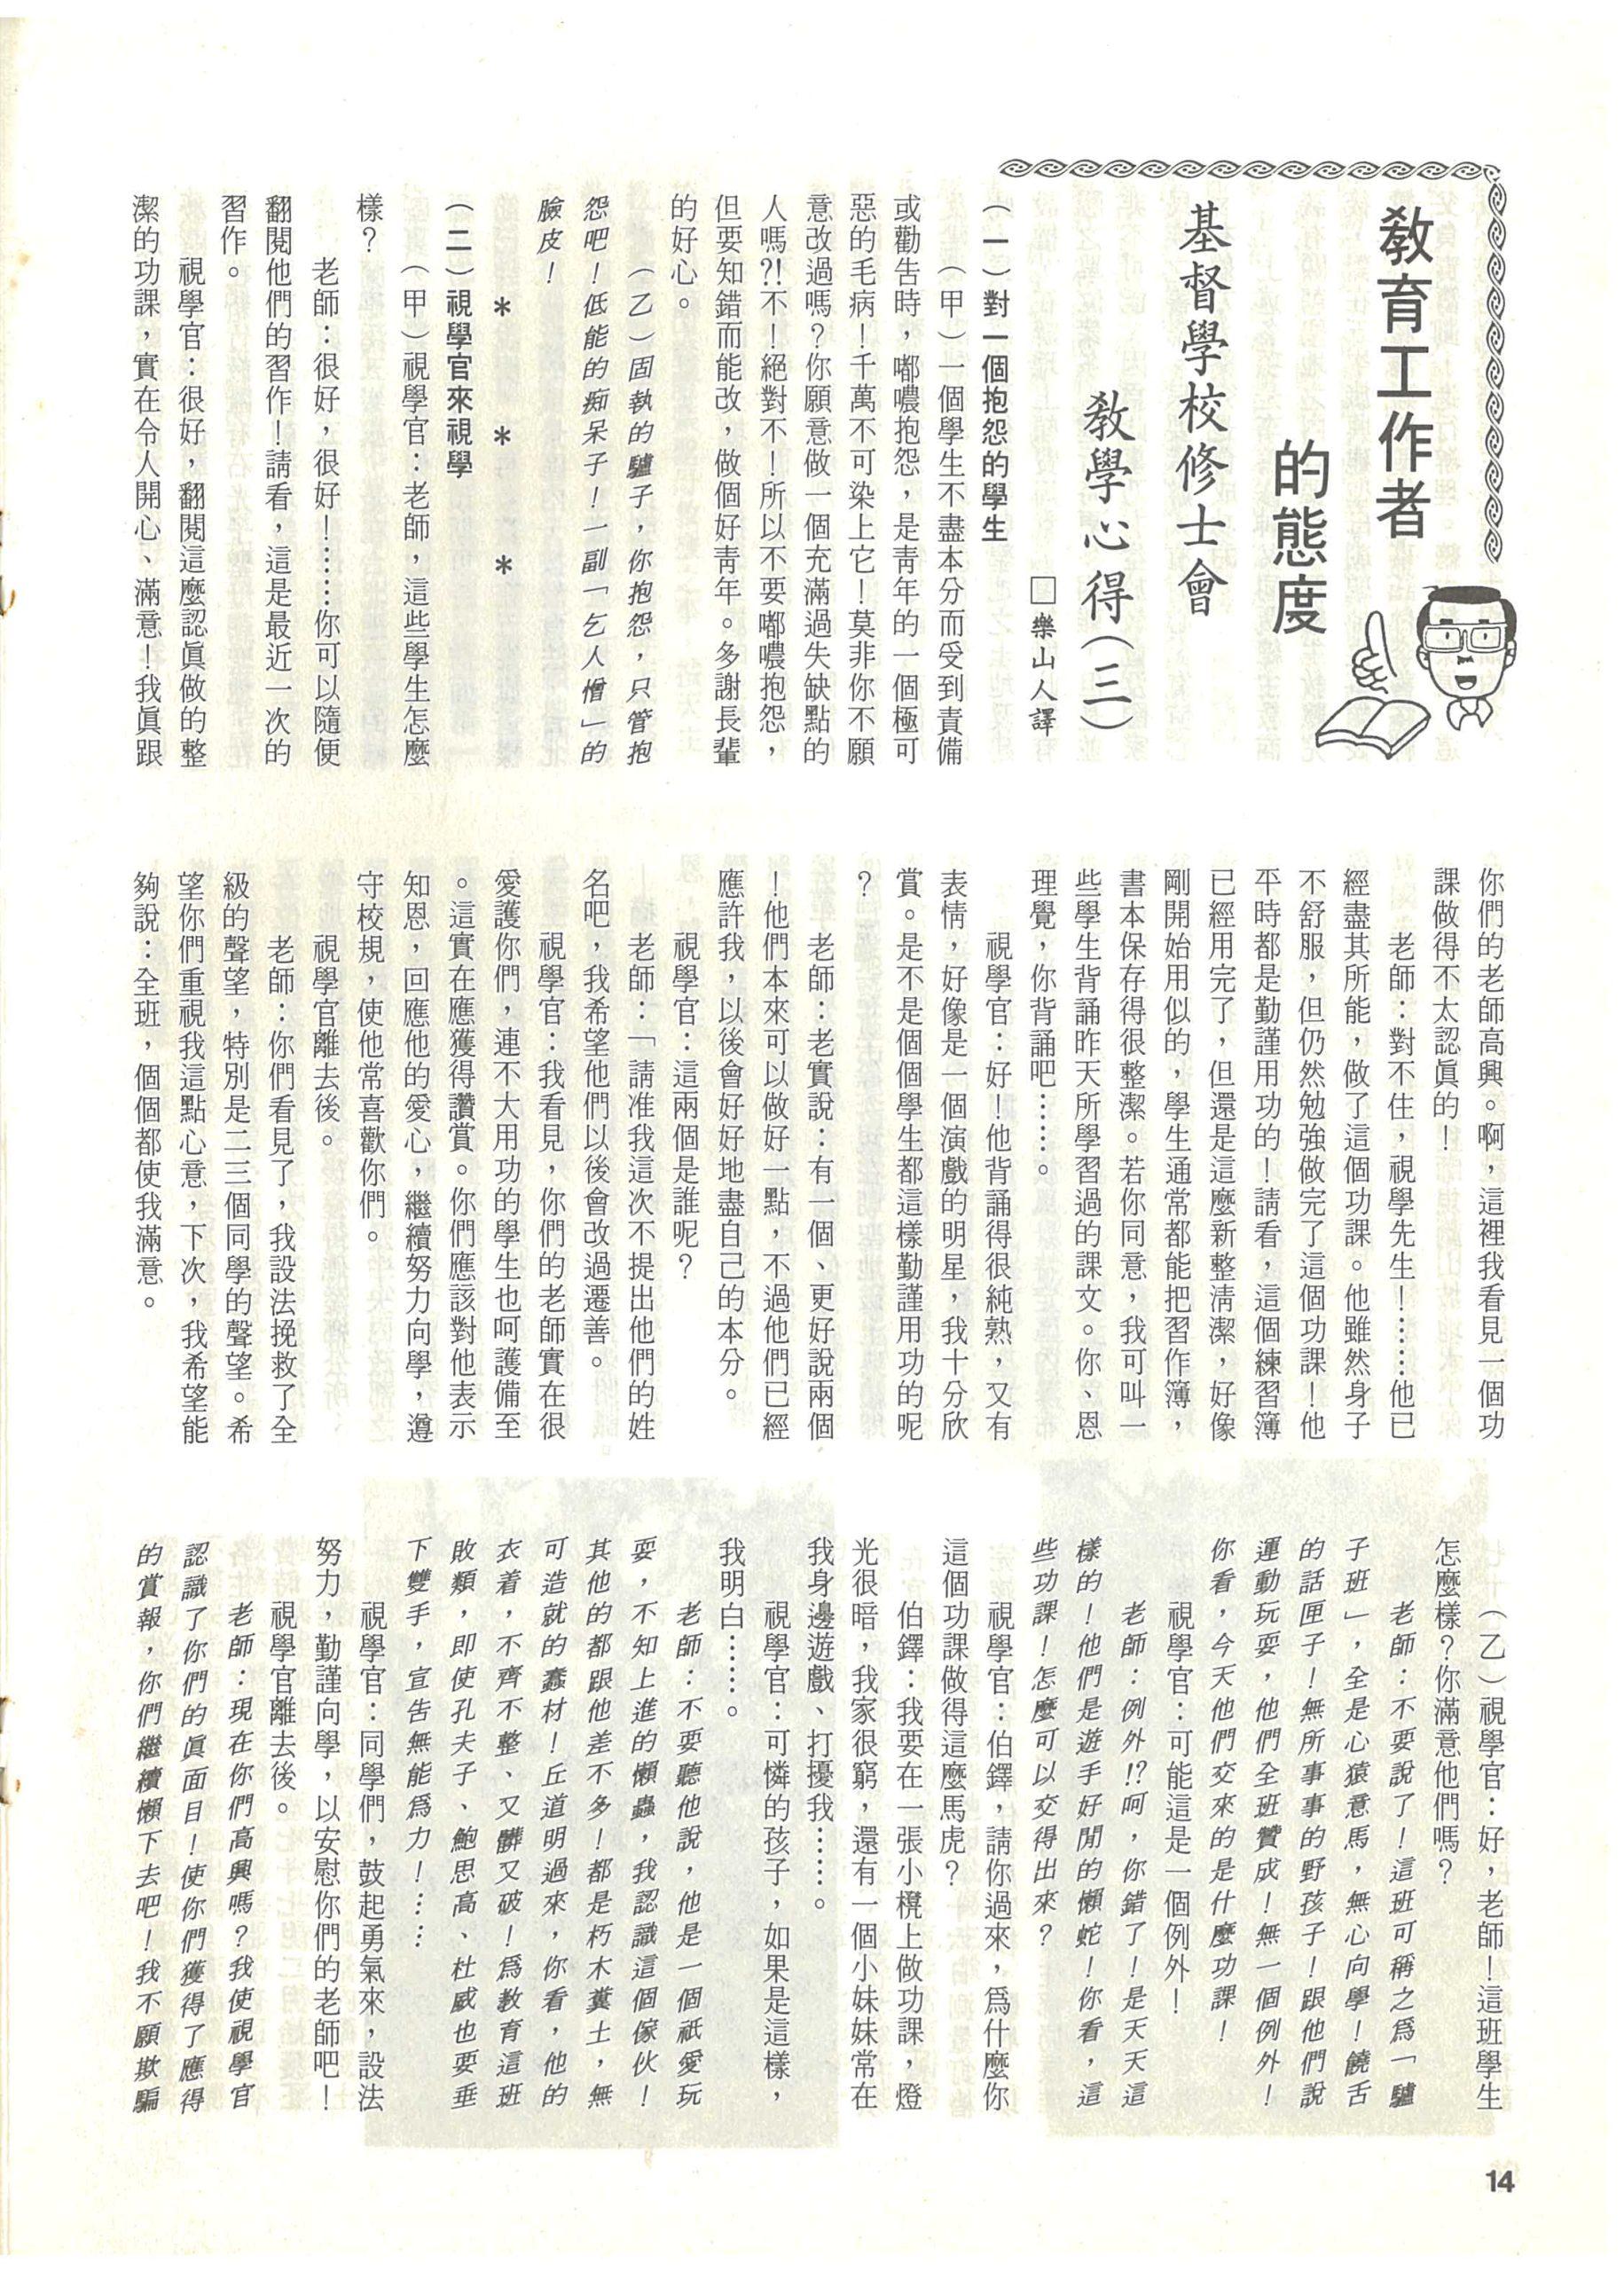 教育工作者
的態度
基督學校修士會
教學心得(三)
□樂山人譯
(一)對一個抱怨的學生
(甲)一個學生不盡本分而受到責備
或勸告時，嘟噥抱怨，是青年的一個極可
惡的毛病！千萬不可染上它！莫非你不願
意改過嗎？你願意做一個充滿過失缺點的
人嗎?!不！絕對不！所以不要嘟噥抱怨，
但要知錯而能改，做個好青年。多謝長輩
的好心。
(乙)固執的驢子，你抱怨，只管抱
怨吧！低能的痴呆子！一副「乞人憎」的
臉皮！
＊ ＊ ＊
(二)視學官來視學
(甲)視學官：老師，這些學生怎麼
樣？
老師：很好，很好！……你可以隨便
翻閱他們的習作！請看，這是最近一次的
習作。
視學官：很好，翻閱這麼認眞做的整
潔的功課，實在令人開心、滿意！我眞跟
你們的老師高興。啊，這裡我看見一個功
課做得不太認眞的！
老師：對不住，視學先生！……他已
經盡其所能，做了這個功課。他雖然身子
不舒服，但仍然勉強做完了這個功課！他
平時都是勤謹用功的！請看，這個練習簿
已經用完了，但還是這麼新整淸潔，好像
剛開始用似的，學生通常都能把習作簿，
書本保存得很整潔。若你同意，我可叫一
些學生背誦昨天所學習過的課文。你、恩
理覺，你背誦吧……。
視學官：好！他背誦得很純熟，又有
表情，好像是一個演戲的明星，我十分欣
賞。是不是個個學生都這樣勤謹用功的呢
？
老師：老實說：有一個、更好說兩個
！他們本來可以做好一點，不過他們已經
應許我，以後會好好地盡自己的本分。
視學官：這兩個是誰呢？
老師：「請准我這次不提出他們的姓
名吧，我希望他們以後會改過遷善。
視學官：我看見，你們的老師實在很
愛護你們，連不大用功的學生也呵護備至
。這實在應獲得讚賞。你們應該對他表示
知恩，回應他的愛心，繼續努力向學，遵
守校規，使他常喜歡你們。
視學官離去後。
老師：你們看見了，我設法挽救了全
級的聲望，特別是二三個同學的聲望。希
望你們重視我這點心意，下次，我希望能
夠說：全班，個個都使我滿意。
(乙)視學官：好，老師！這班學生
怎麼樣？你滿意他們嗎？
老師：不要說了！這班可稱之爲「驢
子班」，全是心猿意馬，無心向學！饒舌
的話匣子！無所事事的野孩子！跟他們說
運動玩耍，他們全班贊成！無一個例外！
你看，今天他們交來的是什麼功課！
視學官：可能這是一個例外！
老師：例外!?呵，你錯了！是天天這
樣的！他們是遊手好閒的懶蛇！你看，這
些功課！怎麼可以交得出來？
視學官：伯鐸，請你過來，爲什麼你
這個功課做得這麼馬虎？
伯鐸：我要在一張小櫈上做功課，燈
光很暗，我家很窮，還有一個小妹妹常在
我身邊遊戲、打擾我……。
視學官：可憐的孩子，如果是這樣，
我明白……。
老師：不要聽他說，他是一個祇愛玩
耍，不知上進的懶蟲，我認識這個傢伙！
其他的都跟他差不多！都是朽木糞土，無
可造就的蠢材！丘道明過來，你看，他的
衣着，不齊不整、又髒又破！爲教育這班
敗類，即使孔夫子、鮑思高、杜威也要垂
下雙手，宣告無能爲力！……
視學官：同學們，鼓起勇氣來，設法
努力，勤謹向學，以安慰你們的老師吧！
視學官離去後。
老師：現在你們高興嗎？我使視學官
認識了你們的眞面目！使你們獲得了應得
的賞報，你們繼續懶下去吧！我不願欺騙
14